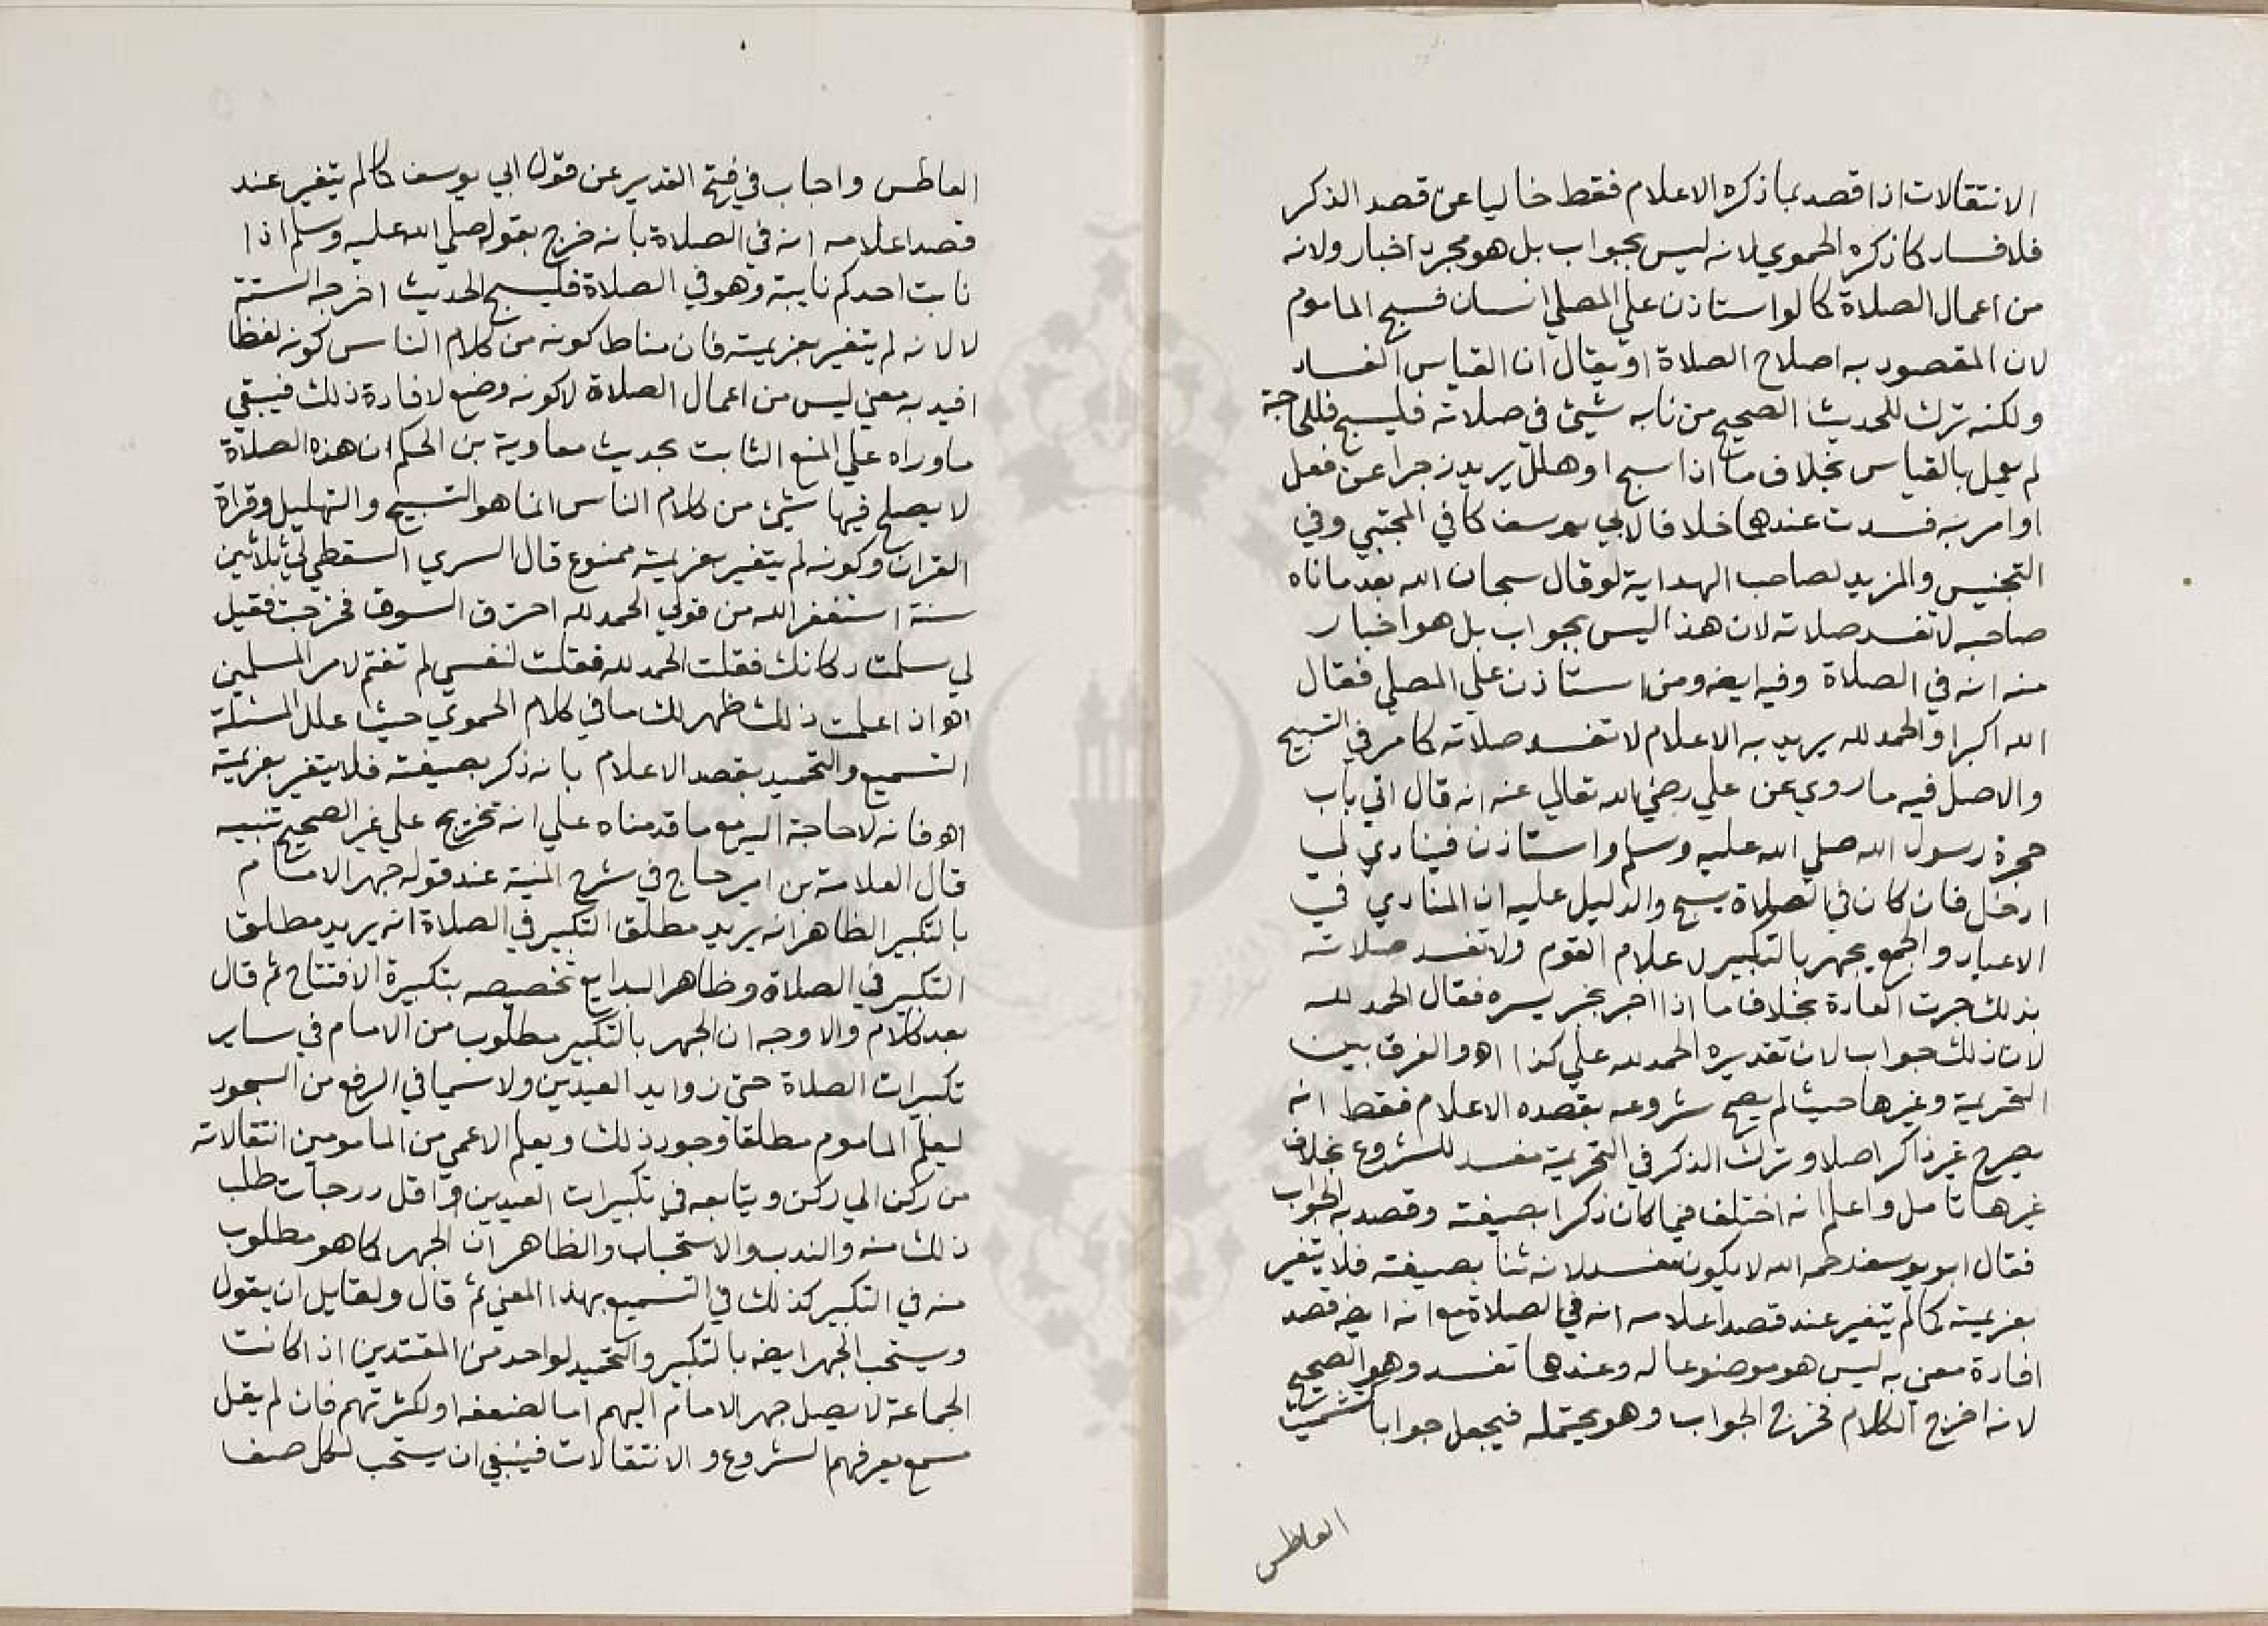 الانتقالات اذا قصد بما ذكره الاعلام فقط خاليا عن قصد الذكر
فلا فساد كما ذكره الحموي لانه ليس بجواب بل هو مجرد اخبار ولانه
من اعمال الصلاة كما لو استاذن علي المصلي انسان فسبح الماموم
لان المقصود به اصلاح الصلاة او يقال ان القياس الفساد
ولكنه ترك للحديث الصحيح من نابه شيئ في صلاته فليسبح فللحاجة
لم يعمل بالقياس بخلاف ما اذا سبح او هلل يريد زجرا عن فعل
او امر به فسدت عندهما خلافا لابي يوسف كما في المجتبي وفي
التجنيس والمزيد لصاحب الهداية لو قال سبحان الله بعد ما ناداه
صاحبه لا تفسد صلاته لان هذا ليس بجواب بل هو اخبار
منه انه في الصلاة وفيه ايضه ومن استاذن علي المصلي فقال
الله اكبر او الحمد لله يريد به الاعلام لا تفسد صلاته كما مر في التسبيح
والاصل فيه ما روي عن علي رضي الله تعالي عنه انه قال اتي باب
حجرة رسول الله صلي الله عليه وسلم واستاذن فينادي لي
ادخل فان كان في الصلاة يسبح والدليل عليه ان المنادي في
الاعياد والجمع يجهر بالتكبير لاعلام القوم ولا تفسد صلاته
بذلك جرت العادة بخلاف ما اذا اخبر بخبر يسره فقال الحمد لله
لان ذلك جواب لان تقديره الحمد لله علي كذا اهـ والفرق بين
التحريمة وغيرها حيث لم يصح شروعه بقصده الاعلام فقط انه
يصرح غير ذاكر اصلا وترك الذكر في التحريمة مفسد للشروع بخلاف
غيرها تامل واعلم انه اختلف فيما كان ذكرا بصيغته وقصد به الجواب
فقال ابو يوسف رحمه الله لا يكون مفسدا لانه ثنا بصيغته فلا يتغير
بعزيمته كما لم يتغير عند قصد اعلامه انه في الصلاة مع انه ايضه قصد
افادة معني به ليس هو موضوعا له وعندهما تفسد وهو الصحيح
لانه اخرج الكلام مخرج الجواب وهو يحتمله فيجعل جوابا كتشميت
العاطس
العاطس واجاب في فتح القدير عن قول ابي يوسف كما لم يتغير عند
قصد اعلامه انه في الصلاة بانه خرج بقوله صلي الله عليه وسلم اذا
نابت احدكم نايبة وهو في الصلاة فليسبح الحديث اخرجه الستة
لا لانه لم يتغير بعزيمته فان مناط كونه من كلام الناس كونه لفظا
افيد به معني ليس من اعمال الصلاة لا كونه وضع لافادة ذلك فيبقي
ما وراه علي المنع الثابت بحديث معاوية بن الحكم ان هذه الصلاة
لا يصلح فيها شيئ من كلام الناس انما هو التسبيح والتهليل وقراة
القران وكونه لم يتغير بعزيمته ممنوع قال السري السقطي لي ثلاثين
سنة استغفر الله من قولي الحمد لله احترق السوق فخرجت فقيل
لي سلمت دكانك فقلت الحمد لله فقلت لنفسي لم تغتم لامر المسلمين
اهـ واذا علمت ذلك ظهر لك ما في كلام الحموي حيث علل المسئلة
التسميع والتحميد بقصد الاعلام بانه ذكر بصيغته فلا يتغير بعزيمته
اهـ فانه لا حاجة اليه مع ما قدمناه علي انه تخريج علي غير الصحيح تنبيه
قال العلامة بن امير حاج في شرح المنية عند قوله جهر الامام
بالتكبير الظاهر انه يريد مطلق التكبير في الصلاة انه يريد مطلق
التكبير في الصلاة وظاهر البدايع تخصيصه بتكبيرة الافتتاح ثم قال
بعد كلام والاوجه ان الجهر بالتكبير مطلوب من الامام في ساير
تكبيرات الصلاة حتي زوايد العيدين ولا سيما في الرفع من السجود
ليعلم الماموم مطلقا وجود ذلك ويعلم الاعمي من المامومين انتقالاته
من ركن الي ركن ويتابعه في تكبيرات العيدين واقل درجات طلب
ذلك منه والندب والاستحباب والظاهر ان الجهر كما هو مطلوب
منه في التكبير كذلك في التسميع بهذا المعني ثم قال ولقايل ان يقول
ويستحب الجهر ايضه بالتكبير والتحميد لواحد من المقتدين اذا كانت
الجماعة لا يصل جهر الامام اليهم اما لضعفه او لكثرتهم فان لم يقل
مسمع يعرفهم الشروع والانتقالات فينبغي ان يستحب لكل صف